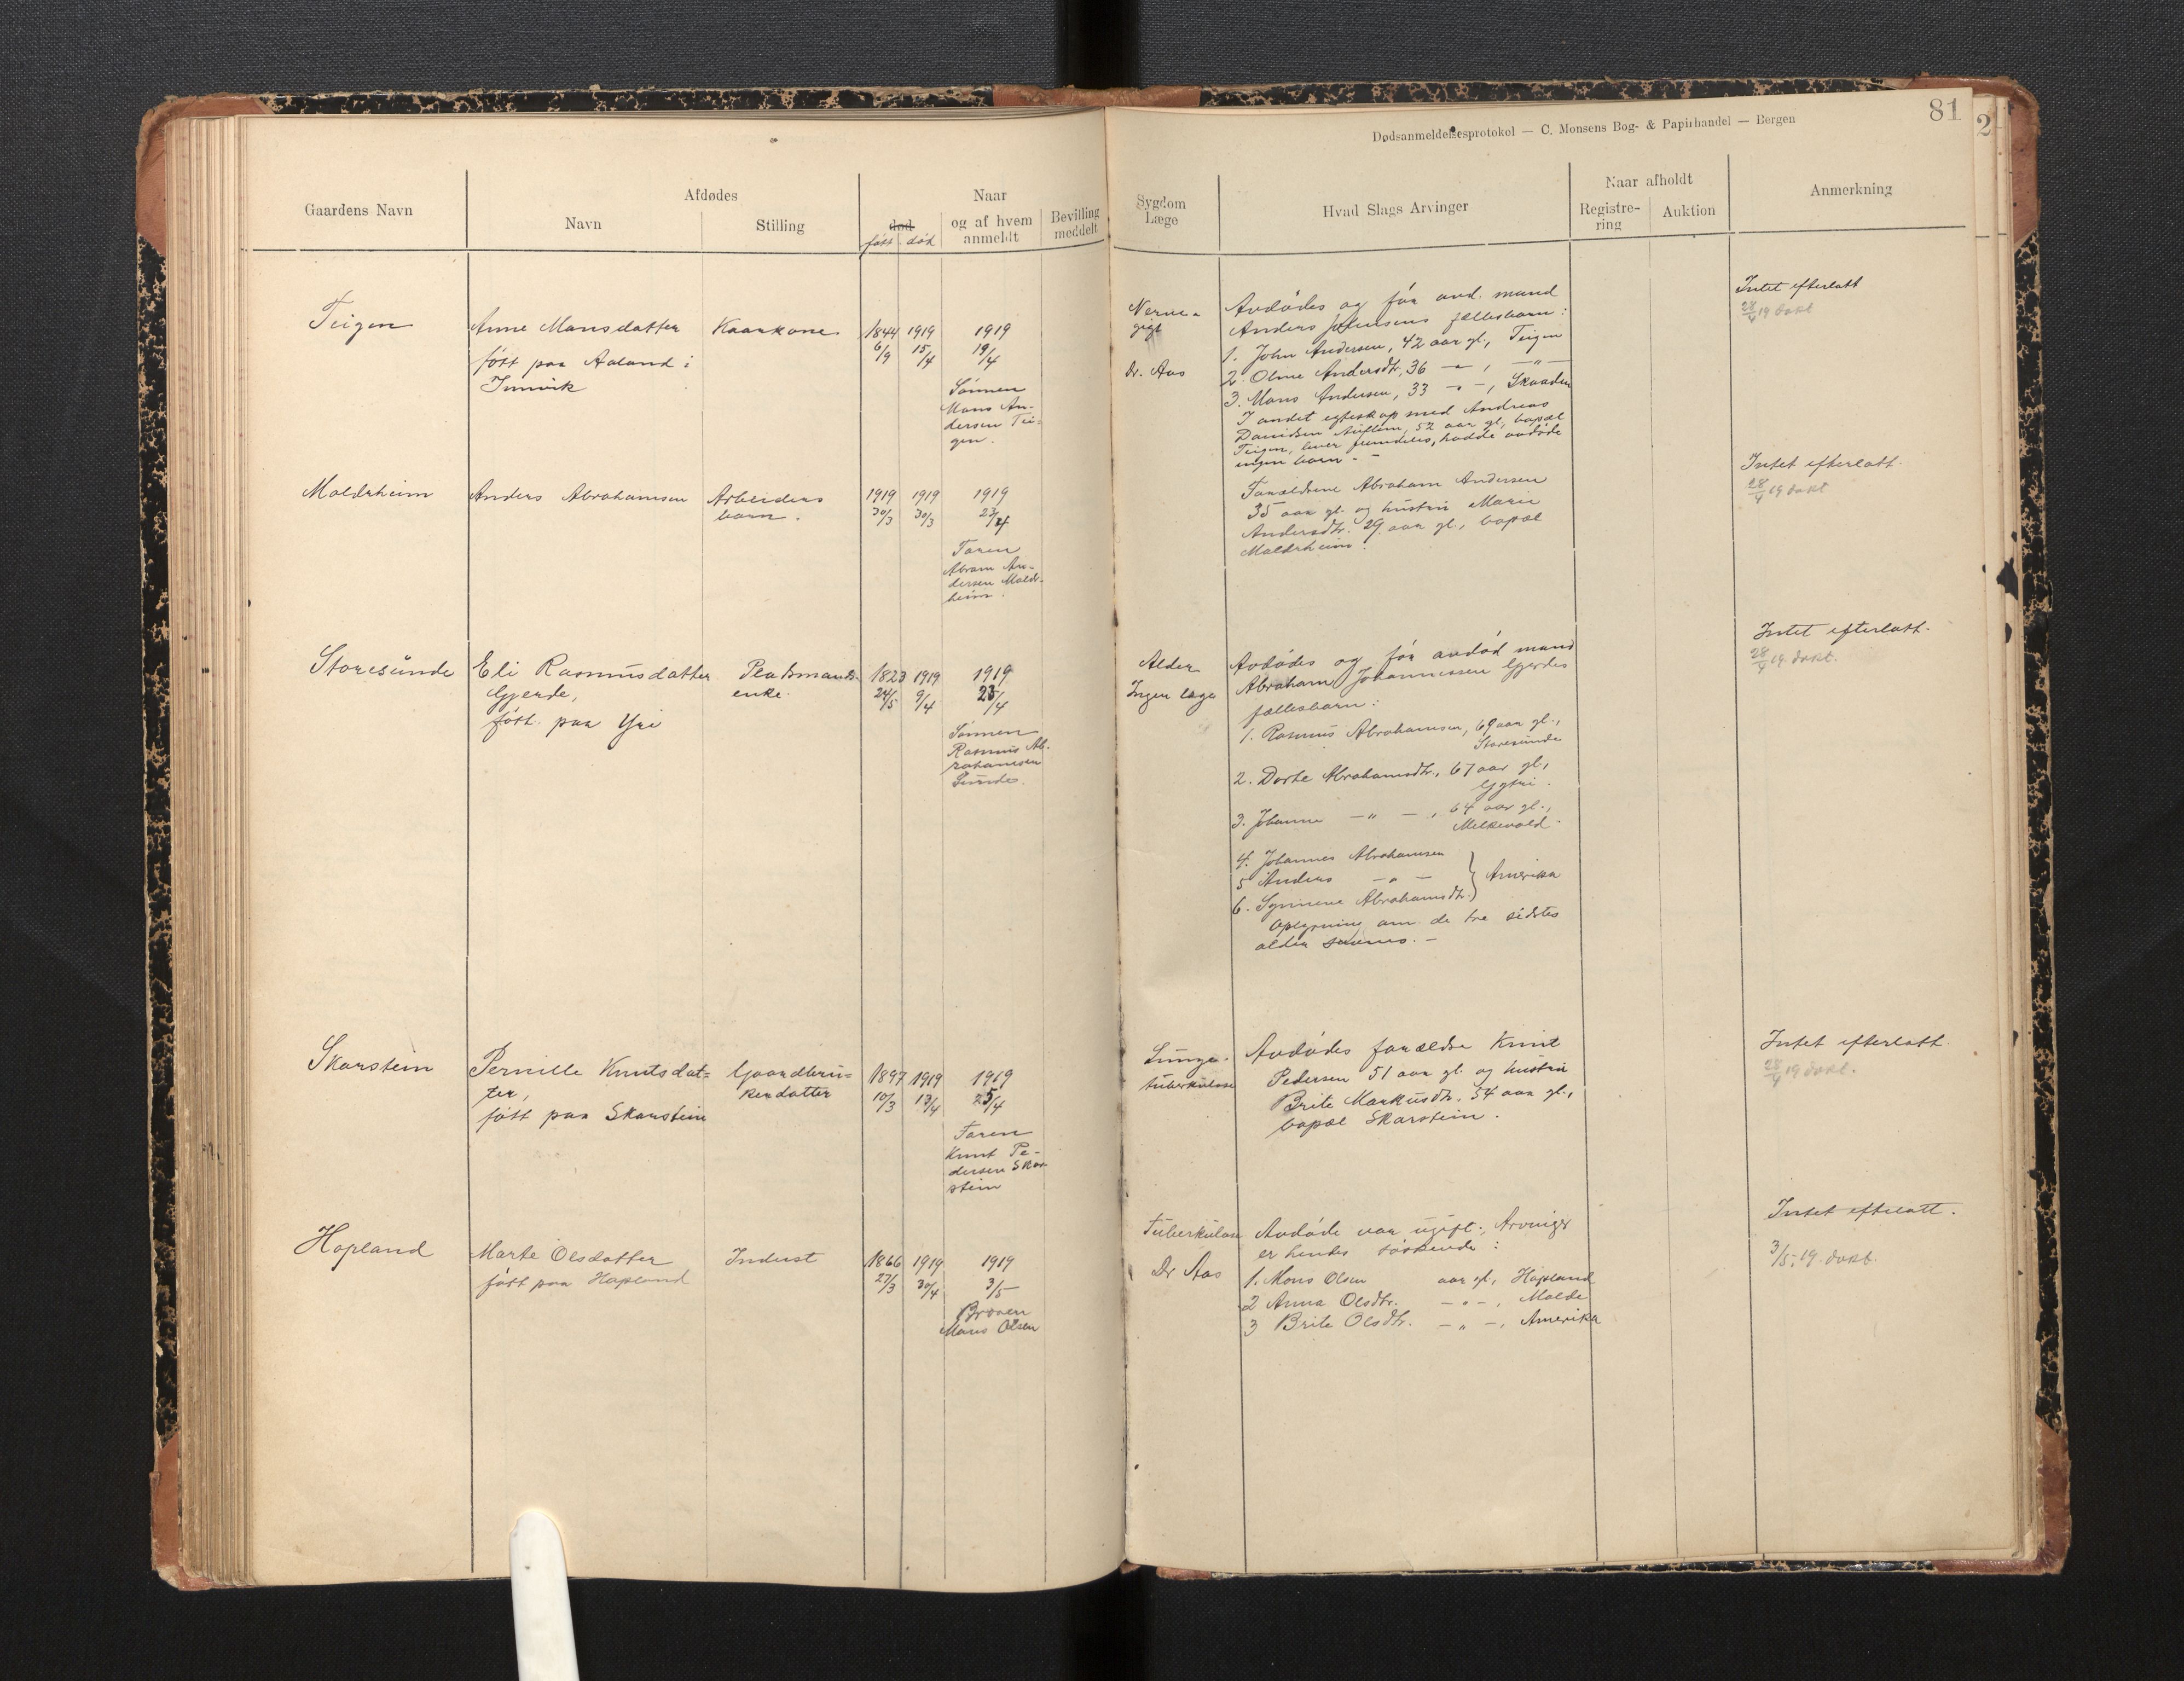 81
2
Dødsanmeldelsesprotokol — C. Monsens Bog- & Papirhandel — Bergen
Gaardens Navn
Afdødes
Navn
Stilling
død
født død
Naar
og af hvem
anmeldt
Bevilling
meddelt
Sygdom
Læge
Hvad Slags Arvinger
Naar afholdt
Registre-
ring
Auktion
Anmerkning
Teigen
Anne Monsdatter
født paa Aaland i
Innvik
Kaarkone
1844 1919 1919
6/9 15/4 19/4
Sønnen
Mons An-
dersen Tei-
gen.
Nerve-
gigt
Dr. Aas
Avdødes og før avd. mand
Anders Johnsens fællesbarn:
1. John Andersen, 42 aar gl., Teigen
2. Oline Andersdtr., 36 — " — , — " —
3. Mons Andersen, 33 — " — , Skaaden
I andet egteskap med Andreas
Davidsen, 52 aar gl., bopæl
Teigen, lever fremdeles, hadde avdøde
ingen barn. —
Intet efterlatt
28/4 19 dokt
Maldrheim
Anders Abrahamsen
Arbeiders
barn.
1919 1919 1919
30/3 30/3 23/4
Faren
Abram An-
dersen Maldr-
heim.
Forældrene Abraham Andersen
35 aar gl. og hustru Marie
Andersdtr. 29 aar gl., bopæl
Maldrheim.
Intet efterlatt.
28/4 19 dokt
Storesunde
Eli Rasmusdatter
Gjerde,
født paa Yri
Pladsmands-
enke.
1823 1919 1919
24/5 9/4 23/4
Sønnen
Rasmus Ab-
rahamsen
Sunde.
Alder
Ingen læge
Avdødes og før avdød mand
Abraham Johannessen Gjerdes
fællesbarn:
1. Rasmus Abrahamsen, 69 aar gl.,
Storesunde
2. Dorte Abrahamsdtr., 67 aar gl.,
Gytri.
3. Johanne — " — , 64 aar gl.,
Melkevold.
4. Johannes Abrahamsen
5 Anders — " — } Amerika
6. Synneve Abrahamsdtr.
Oplysning om de tre sidstes
alder savnes. —
Intet efterlatt.
28/4 19 dokt.
Skarstein
Pernille Knutsdat=
ter,
født paa Skarstein
Gaardbru=
kerdatter
1897 1919 1919
10/3 13/4 25/4
Faren
Knut Pe-
dersen Skar-
stein
Lunge-
tuberkulose
Avdødes forældre Knut
Pedersen 51 aar gl. og hustru
Brite Markusdtr. 54 aar gl.,
bopæl Skarstein.
Intet efterlatt
28/4 19 dokt.
Hopland
Marte Olsdatter
født paa Hopland
Inderst
1866 1919 1919
27/3 30/4 3/5
Broren
Mons Olsen
Tuberkulose
Dr Aas
Avdøde var ugift; Arvinger
er hendes søskende:
1. Mons Olsen aar gl., Hopland
2 Anna Olsdtr. — " — , Molde
3 Brite Olsdtr. — " — , Amerika
Intet efterlatt.
3/5 19 dokt.